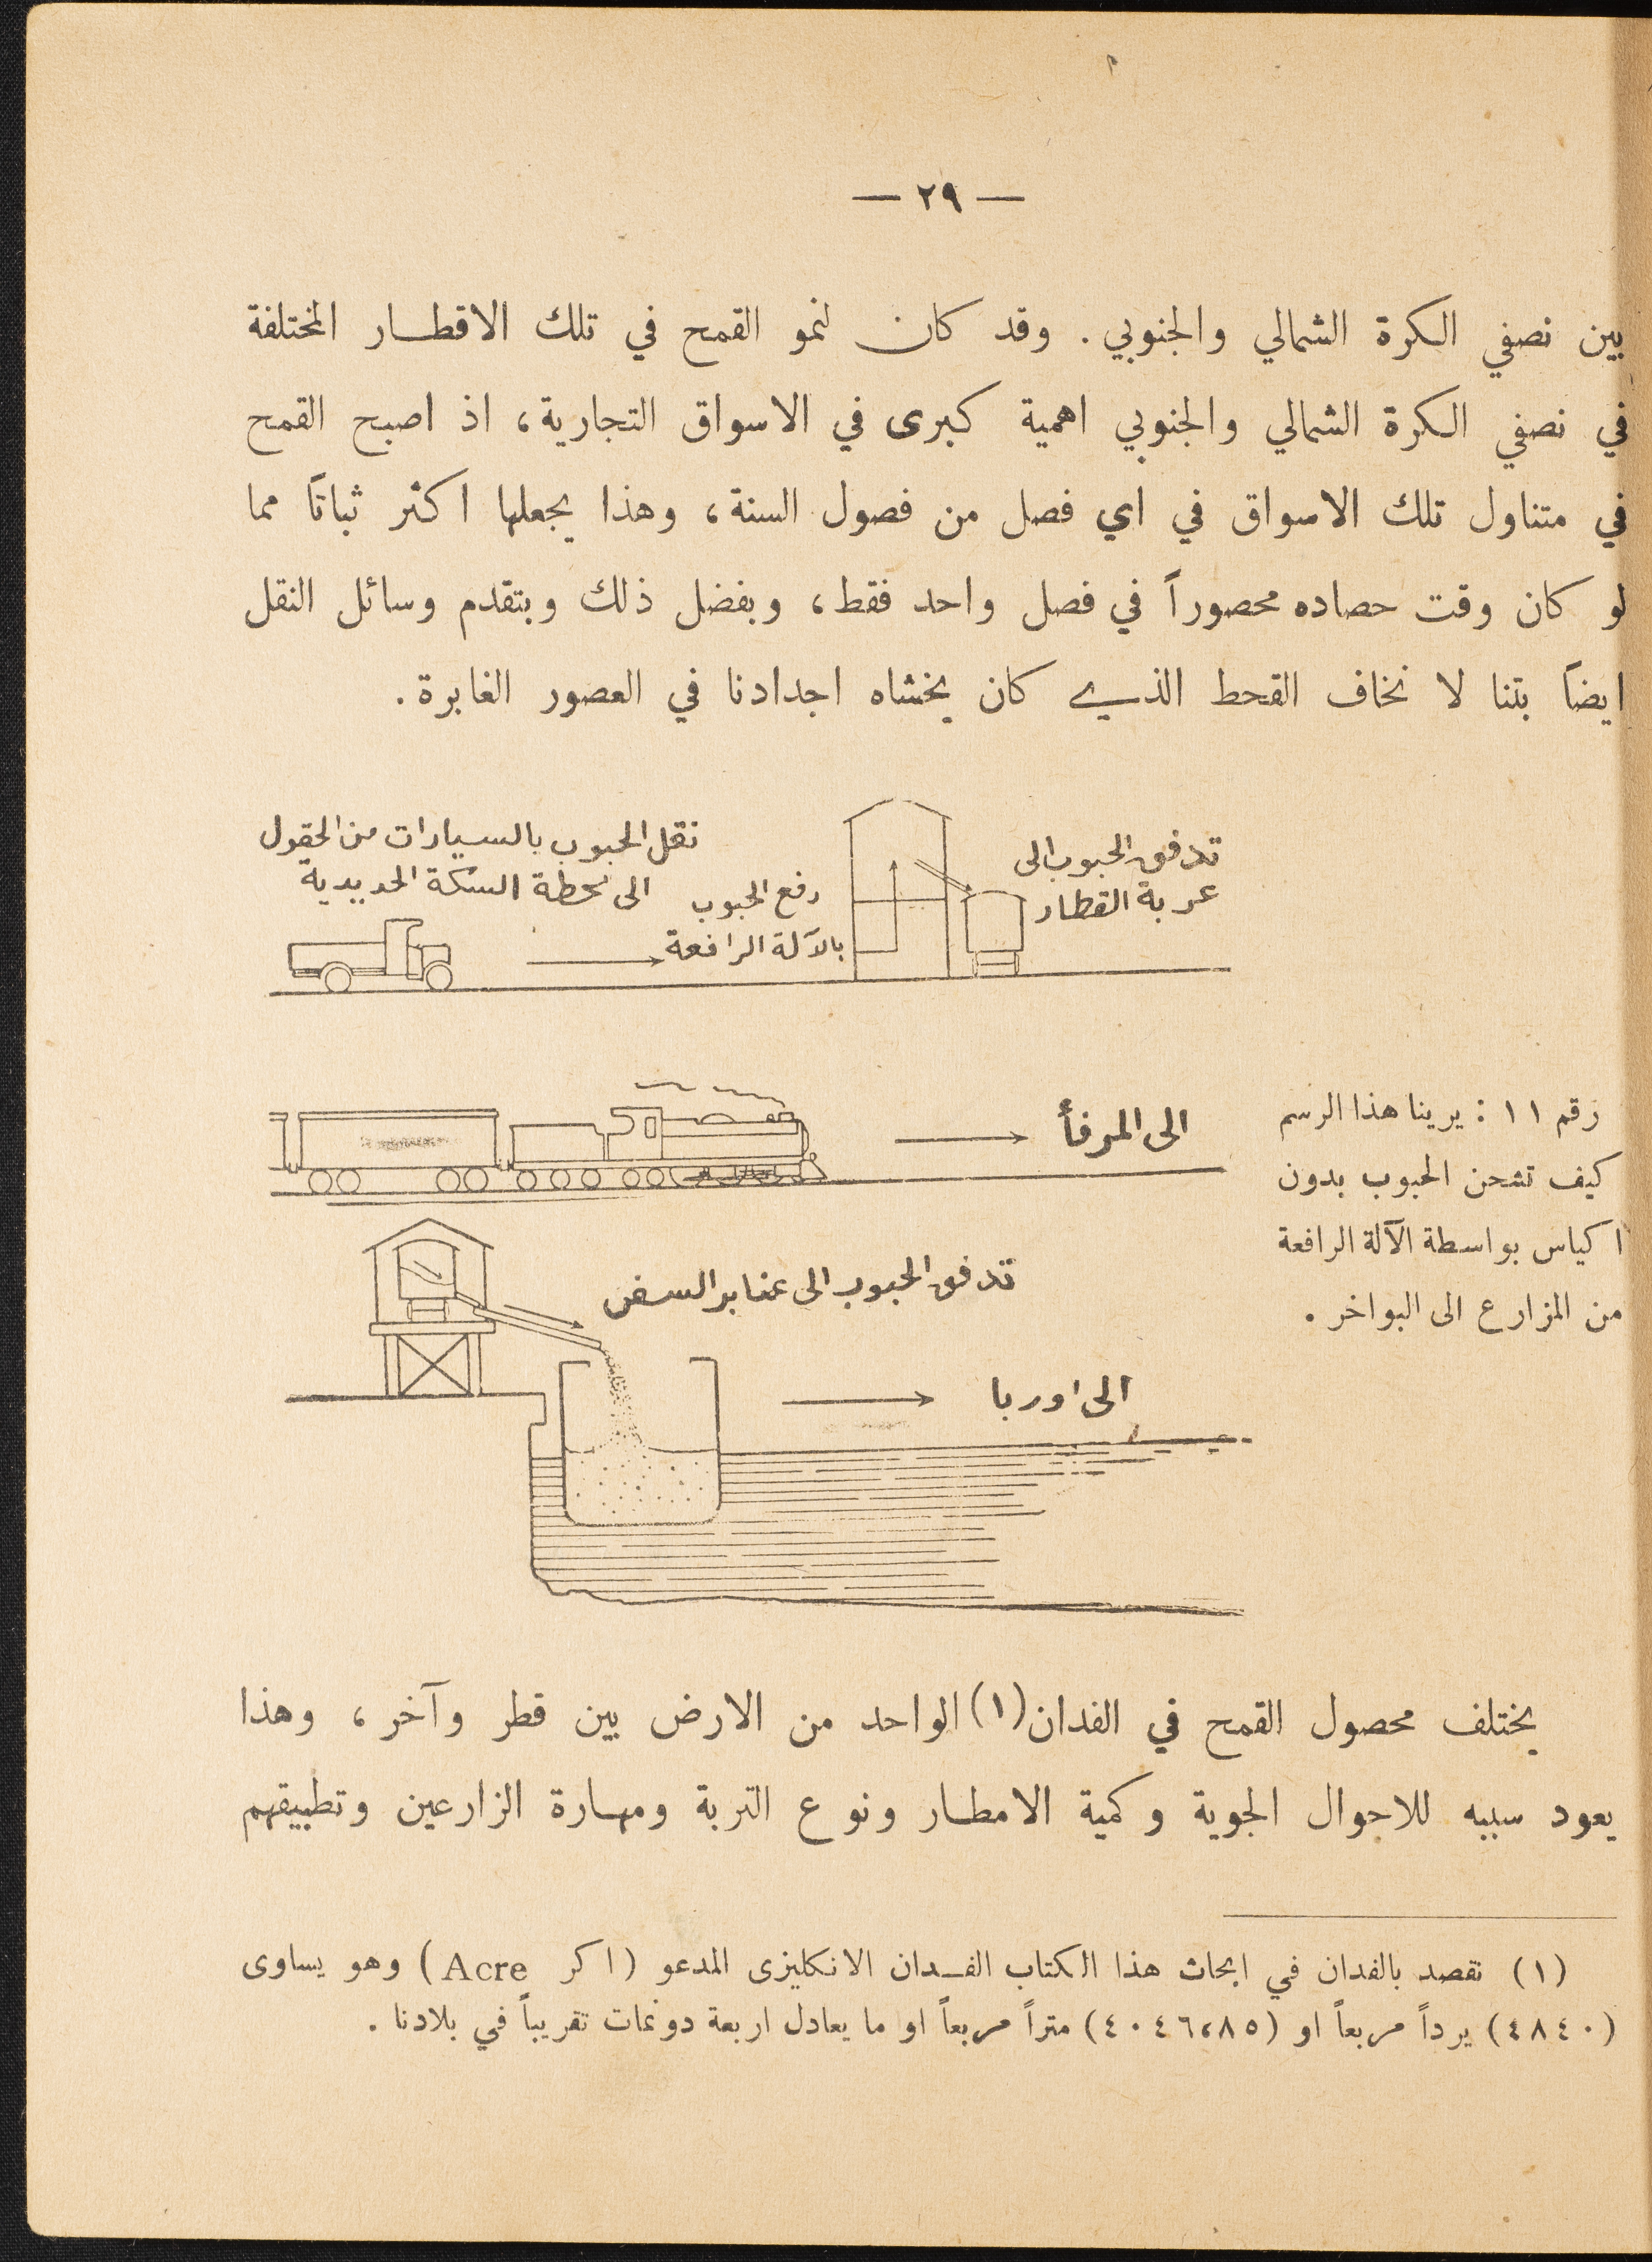 — ٢٩ —
بين نصفي الكرة الشمالي والجنوبي . وقد كان لنمو القمح في تلك الاقطار المختلفة
في نصفي الكرة الشمالي والجنوبي اهمية كبرى في الاسواق التجارية ، اذ اصبح القمح
في متناول تلك الاسواق في اي فصل من فصول السنة ، وهذا يجعلها اكثر ثباتاً مما
لو كان وقت حصاده محصوراً في فصل واحد فقط ، وبفضل ذلك وبتقدم وسائل النقل
ايضاً بتنا لا نخاف القحط الذي كان يخشاه اجدادنا في العصور الغابرة .
تدفق الحبوب الى
عربة القطار
رفع الحبوب
بالآلة الرافعة
نقل الحبوب بالسيارات من الحقول
الى محطة السكة الحديدية
الى المرفأ
رقم ١١ : يرينا هذا الرسم
كيف تشحن الحبوب بدون
اكياس بواسطة الآلة الرافعة
من المزارع الى البواخر .
تدفق الحبوب الى عنابر السفن
الى اوربا
يختلف محصول القمح في الفدان (١) الواحد من الارض بين قطر وآخر ، وهذا
يعود سببه للاحوال الجوية وكمية الامطار ونوع التربة ومهارة الزارعين وتطبيقهم
(١) نقصد بالفدان في ابحاث هذا الكتاب الفدان الانكليزى المدعو (اكر Acre) وهو يساوى
(٤٨٤٠) يرداً مربعاً او (٤٠٤٦،٨٥) متراً مربعاً او ما يعادل اربعة دونمات تقريباً في بلادنا .